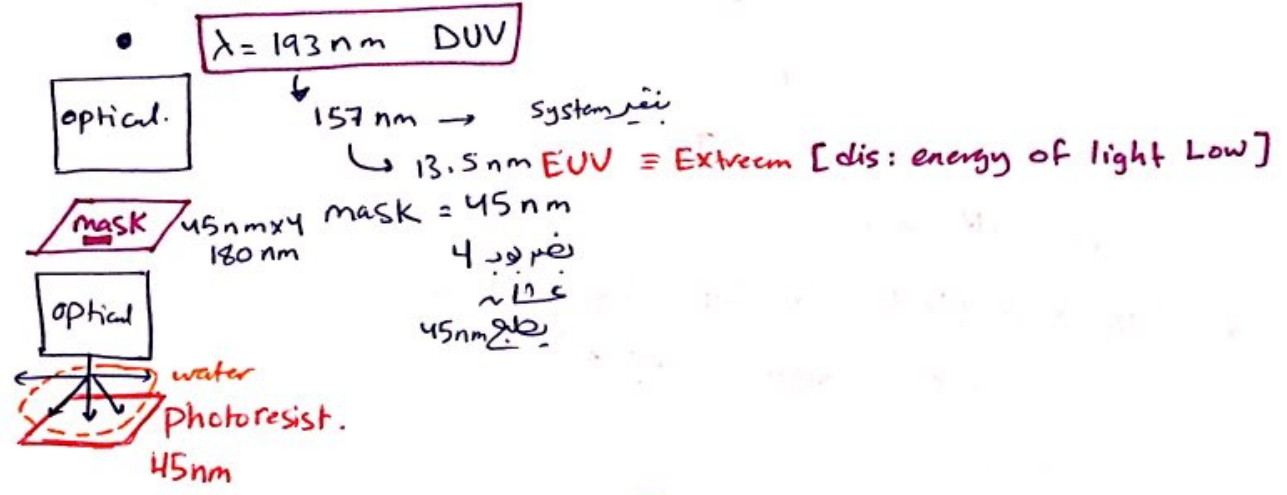 λ = 193 nm DUV
optical.
157 nm → System بنغير
13.5 nm EUV ≡ Extreem [dis: energy of light Low]
mask
45nm×4
180 nm
mask = 45 nm
4 مضروب
عشان
45nm يطلع
optical
water
photoresist.
45nm